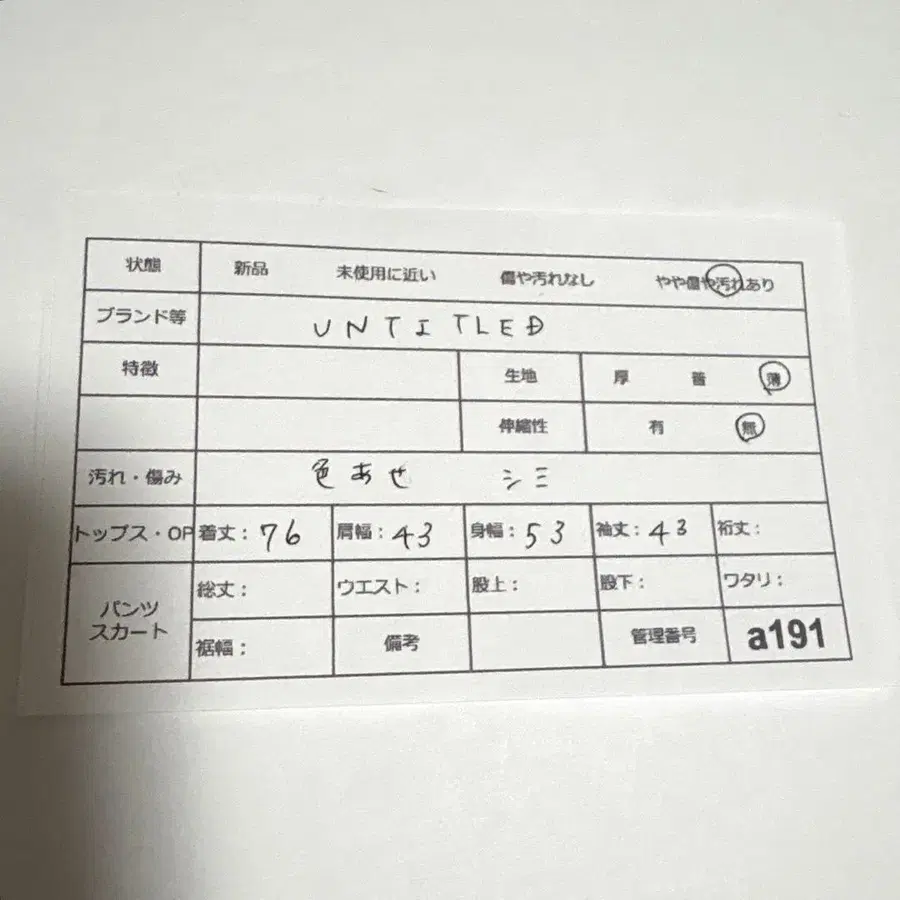 状態 新品 未使用に近い 傷や汚れなし やや傷や汚れあり
ブランド等 UNTITLED
特徴 生地 厚 普 薄
伸縮性 有 無
汚れ・傷み 色あせ シミ
トップス・OP 着丈：76 肩幅：43 身幅：53 袖丈：43 裄丈：
パンツ スカート 総丈： ウエスト： 股上： 股下： ワタリ：
裾幅： 備考 管理番号 a191